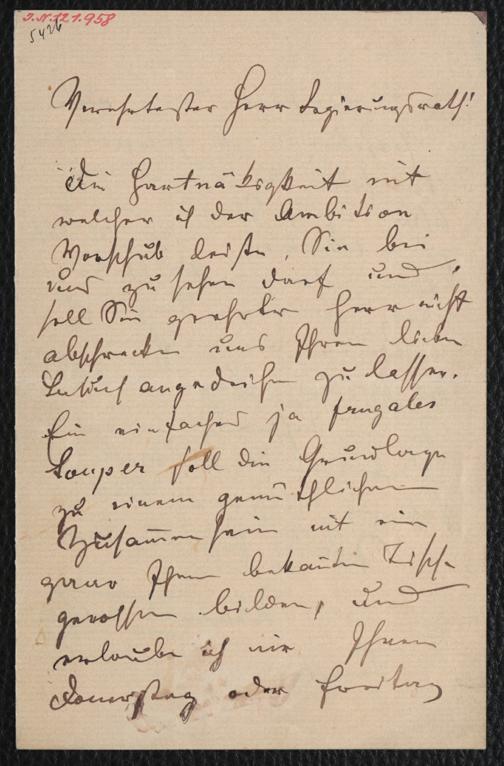 J.N. 121.958
5426
Verehrtester Herr Regierungsrath!
Die Hartnäckigkeit mit
welcher ich der Ambition
Vorschub leiste, Sie bei
uns zu sehen darf und
soll Sie geehrter Herr nicht
abschrecken uns Ihren lieben
Besuch angedeihen zu lassen.
Ein einfaches ja frugales
Souper soll die Grundlage
zu einem gemüthlichen
Zusam̅ensein mit ein
paar Ihnen bekan̅ten Tisch-
genossen bilden, und
erlaube ich mir Ihnen
Donnerstag oder Freitag